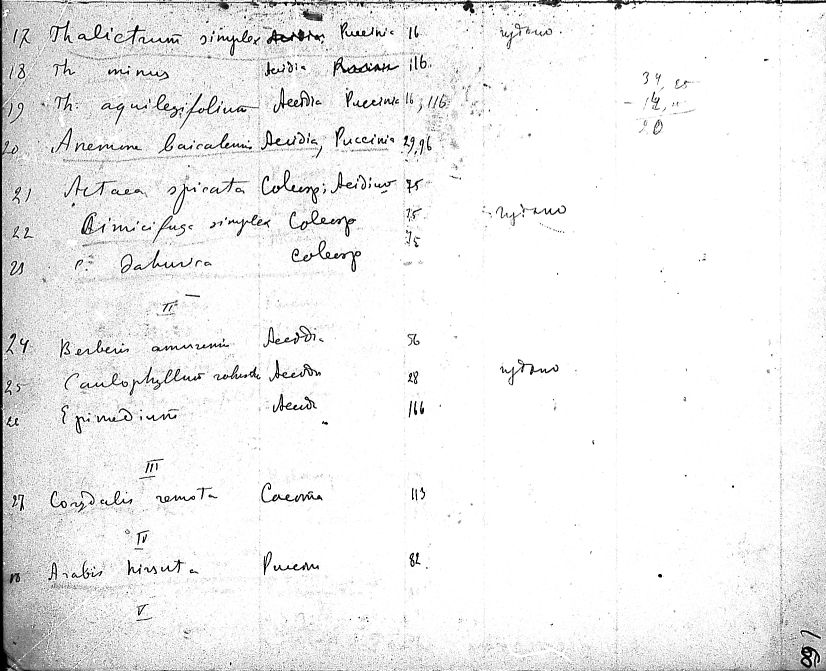 17 Thalictrum simplex Puccinia 16
18 Th minus Acidia 116
19 Th. aquilegifolium Aecidia Puccinia 16, 116
34, 25
20
20 Anemone baicalensis Aecidia, Puccinia 29,96
21 Actaea spicata Coleosp; 75
22 Cimicifuga simplex Coleosp 75
23 C. dahurica Coleosp 75
II
24 Berberis amurensis Aecidia 56
25 Caulophyllum robusta 28
26 Epimedium Aecidi 166
III
27 Corydalis remota Caeoma 113
IV
28 Arabis hirsuta 82
V